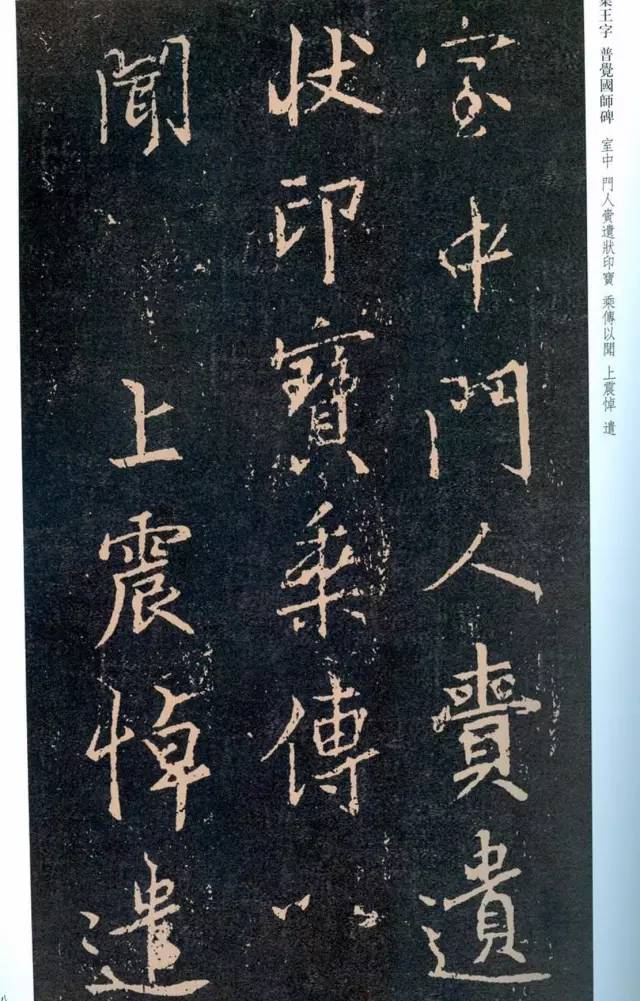 集王字 普覺國師碑 室中 門人賫遺狀印寶 乘傳以聞 上震悼 遣
室中門人賫遺
状印寶乘傳以
聞 上震悼遣
八